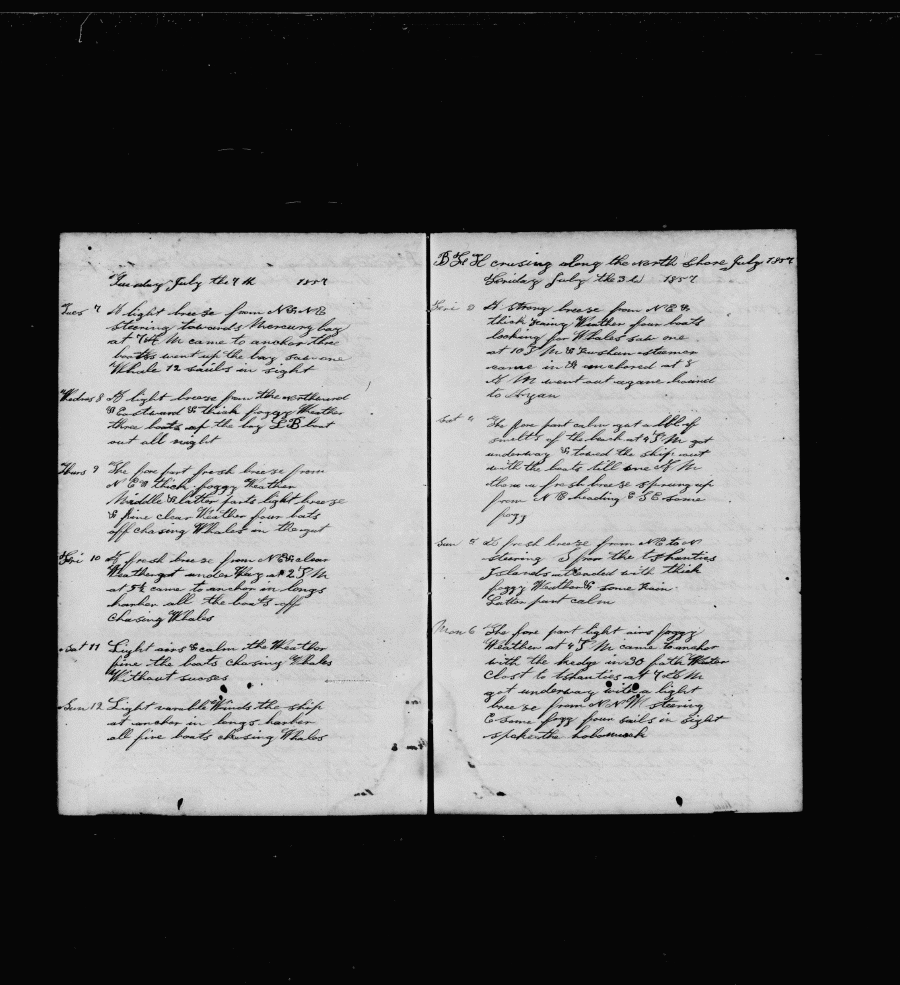 Tuesday July the 7th 1857
Tues 7 A light breese from N & NE
steering towards Mercury bay
at 7 A M came to anchor three
boats went up the bay saw one
Whale 12 sails in sight
Wednes 8 A light breese from the northward
& Eastward & thick foggy Weather
three boats up the bay L B boat
out all night
Thurs 9 The fore part fresh breese from
N E & thick foggy Weather
Middle & latter parts light breese
& fine clear Weather four boats
off chasing Whales in the
Fri 10 A fresh breese from N E & clear
Weather got under Way at 2 P M
at 5½ came to anchor in longs
harber all the boats off
chasing Whales
Sat 11 Light airs & calm the Weather
fine the boats chasing Whales
Without sucses
Sun 12 Light varable Winds the ship
at anchor in longs harber
all five boats chasing Whales
crusing along the North Shore July 1857
Friday July the 3 1857
Fri 3 A strong breese from N E &
thick Weather four boats
looking for Whales saw one
at 10 P M a steamer
came in & anchored at 8
A M went out agane bound
to Ayan
Sat 4 The fore part calm got a bbl of
smelts of the bach at 4 P M got
underway & towed the ship out
with the boats till one A M
then a fresh breese sprung up
from N E heading E S E some
fogg
Sun 5 A fresh breese from NE to N
steering for the Shanties
Islands ended with thick
foggy Weather & some rain
Latter part calm
Mon 6 The fore part light airs foggy
Weather at 4 P M came to anchor
with the kedge in 30 fath Water
Close to Shanties at 7 A M
got underway with a light
breese from N N W steering
E some fogg four sails in sight
spoke the